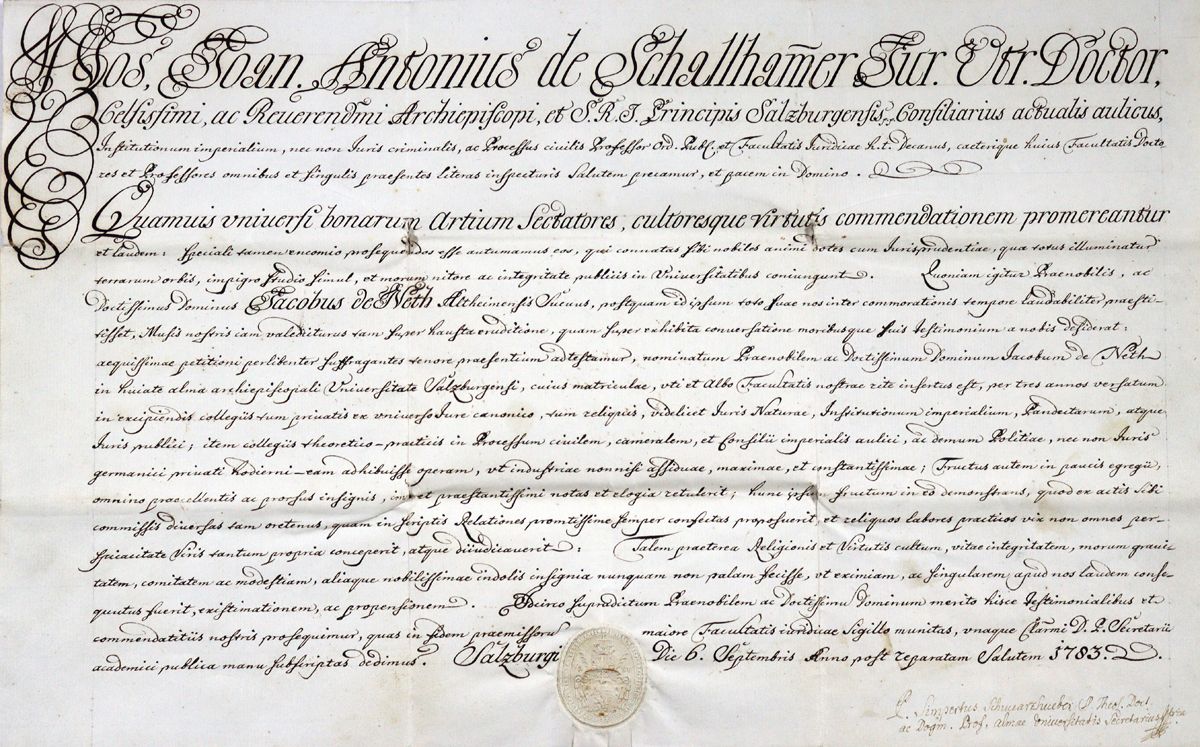 Nos, Joan. Antonius de Schallham̄er Jur. Vtr. Doctor,
Celsissimi, ac Reuerendmi Archiepiscopi, et S. R. J. Principis Salzburgensis, Consiliarius actualis aulicus,
Institutionum imperialium, nec non Iuris criminalis, ac Processus civilis Professor Ord. Publ. et Facultatis Iuridicae h. t. Decanus, caeterique huius Facultatis Docto
res et Professores omnibus et singulis praesentes literas inspecturis Salutem precamur, et pacem in Domino.
Quamuis vniuersi bonarum Artium Sectatores, cultoresque virtutis commendationem promereantur
et laudem: speciali tamen encomio prosequendos esse autumamus eos, qui connatas sibi nobiles animi dotes cum Iurisprudentiae, qua totus illuminatur
terrarum orbis, impigro studio simul, et morum nitore ac integritate publicis in Vniuersitatibus coniungunt. Quoniam igitur Praenobilis, ac
Doctissimus Dominus Jacobus de Neth Altheinensis Sueuus, postquam id ipsum toto suae nos inter commorationis tempore laudabiliter praesti-
tisset, Musis nostris iam valediturus tam super hausta eruditione, quam super exhibita conuersatione moribusque suis testimonium a nobis desiderat:
aequissimae petitioni perlibenter suffragantes tenore praesentium adtestamur, nominatum Praenobilem ac Doctissimum Dominum Jacobum de Neth
in huiate alma archiepiscopali Vniuersitate Salzburgensi, cuius matriculae, vti et Albo Facultatis nostrae rite insertus est, per tres annos versatum
in excipiendis collegiis tum priuatis ex vniuerso Iure canonico, tum reliquis, videlicet Iuris Naturae, Institutionum imperialium, Pandectarum, atque
Iuris publici; item collegiis theoretico-practicis in Processum civilem, cameralem, et Consilii imperialis aulici, ac demum Politiae, nec non Iuris
germanici privati hodierni eam adhibuisse operam, vt industriae nonnisi assiduae, maximae, et constantissimae; Fructus autem in paucis egregii,
omnino praecellentis ac prorsus insignis, et praestantissimi notas et elogia retulerit; hunc ipsum fructum in eo demonstrans, quod ex actis sibi
commissis diuersas tam oretenus, quam in scriptis Relationes promtissime semper confectas proposuerit, et reliquos labores practicos vix non omnes per-
spicacitate Viris tantum propria conceperit, atque diiudicauerit: Talem praeterea Religionis et Virtutis cultum, vitae integritatem, morum graui-
tatem, comitatem ac modestiam, aliaque nobilissimae indolis insignia nunquam non palam fecisse, vt eximiam, ac singularem apud nos laudem conse-
quutus fuerit, existimationem, ac propensionem. Idcirco supradictum Praenobilem ac Doctissimu Dominum merito hisce Testimonialibus et
commendatitiis nostris prosequimur, quas in fidem praemissoru maiore Facultatis iuridicae Sigillo munitas, vnaque Clarmi D. P. Secretarii
academici publica manu subscriptas dedimus. Salzburgi Die 6. Septembris Anno post reparatam Salutem 1783.
P. Simpertus Schwarzhueber S. Theol. Doct.
ac Dogm. Prof. almae Universitatis Secretarius